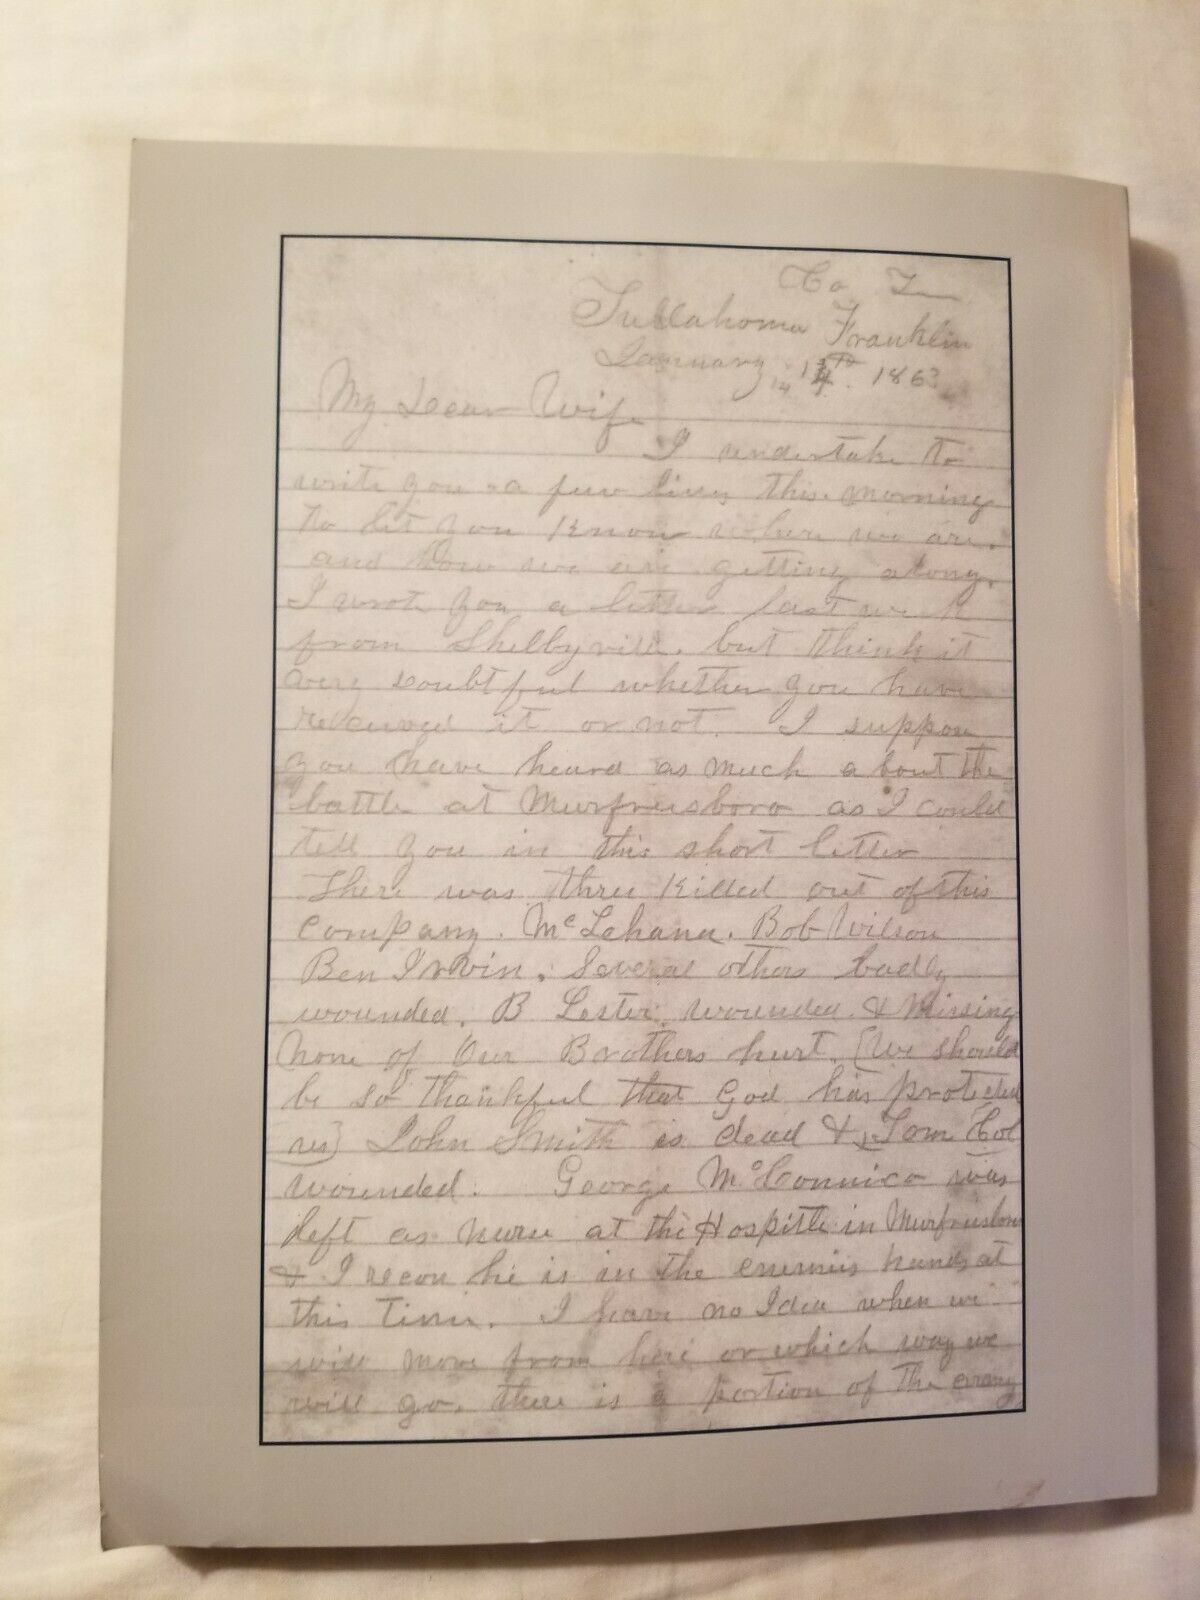 Co Ten
Tullahoma Franklin
January 14 14th 1863
My Dear Wife
I undertake to
write you a few lines this morning
to let you know where we are.
and how we are getting along.
I wrote you a letter last week
from Shelbyville. but think it
very doubtful whether you have
received it or not. I suppose
you have heard as much about the
battle at Murfreesboro as I could
tell you in this short letter
There was three killed out of this
company. Bob Wilson
Ben Irvin. Several others badly
wounded. B Lester wounded & Missing
None of Our Brothers hurt. (We should
be so thankful that God has protected
us) John Smith is dead & Tom
wounded. George McConnico was
left as nurse at the Hospitle in Murfreesboro
& I recon he is in the enemies hands at
this Time. I have no Idea when we
will move from here or which way we
will go. there is a portion of the army